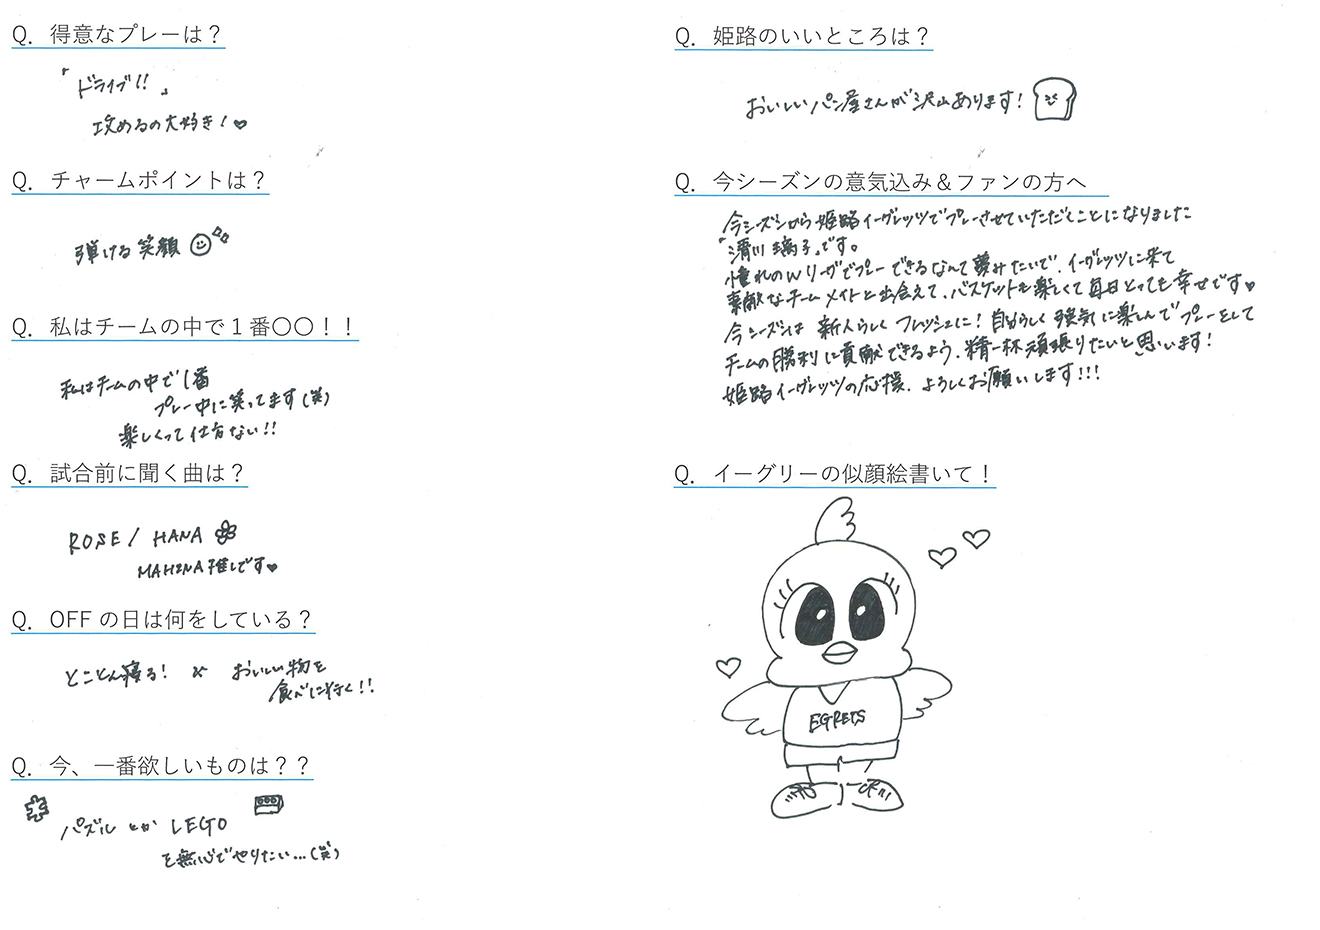 Q. 得意なプレーは？
「ドライブ!!」
攻めるの大好き！♥
Q. チャームポイントは？
弾ける笑顔
Q. 私はチームの中で１番〇〇！！
私はチームの中で1番
プレー中に笑ってます(笑)
楽しくって仕方ない!!
Q. 試合前に聞く曲は？
ROSE / HANA
MAHINA推しです♥
Q. OFF の日は何をしている？
とことん寝る！ × おいしい物を
食べに行く!!
Q. 今、一番欲しいものは？？
パズル とか LEGO
を無心でやりたい…(笑)
Q. 姫路のいいところは？
おいしいパン屋さんが沢山あります！
Q. 今シーズンの意気込み＆ファンの方へ
今シーズンから姫路イーグレッツでプレーさせていただくことになりました
「滑川 璃子」です。
憧れのWリーグでプレーできるなんて夢みたいで、イーグレッツに来て
素敵なチームメイトと出会えて、バスケットも楽しくて毎日とっても幸せです♥
今シーズンは 新人らしく フレッシュに！自分らしく 強気に楽しんでプレーをして
チームの勝利に貢献できるよう、精一杯頑張りたいと思います！
姫路イーグレッツの応援、よろしくお願いします!!!
Q. イーグリーの似顔絵書いて！
EGRETS